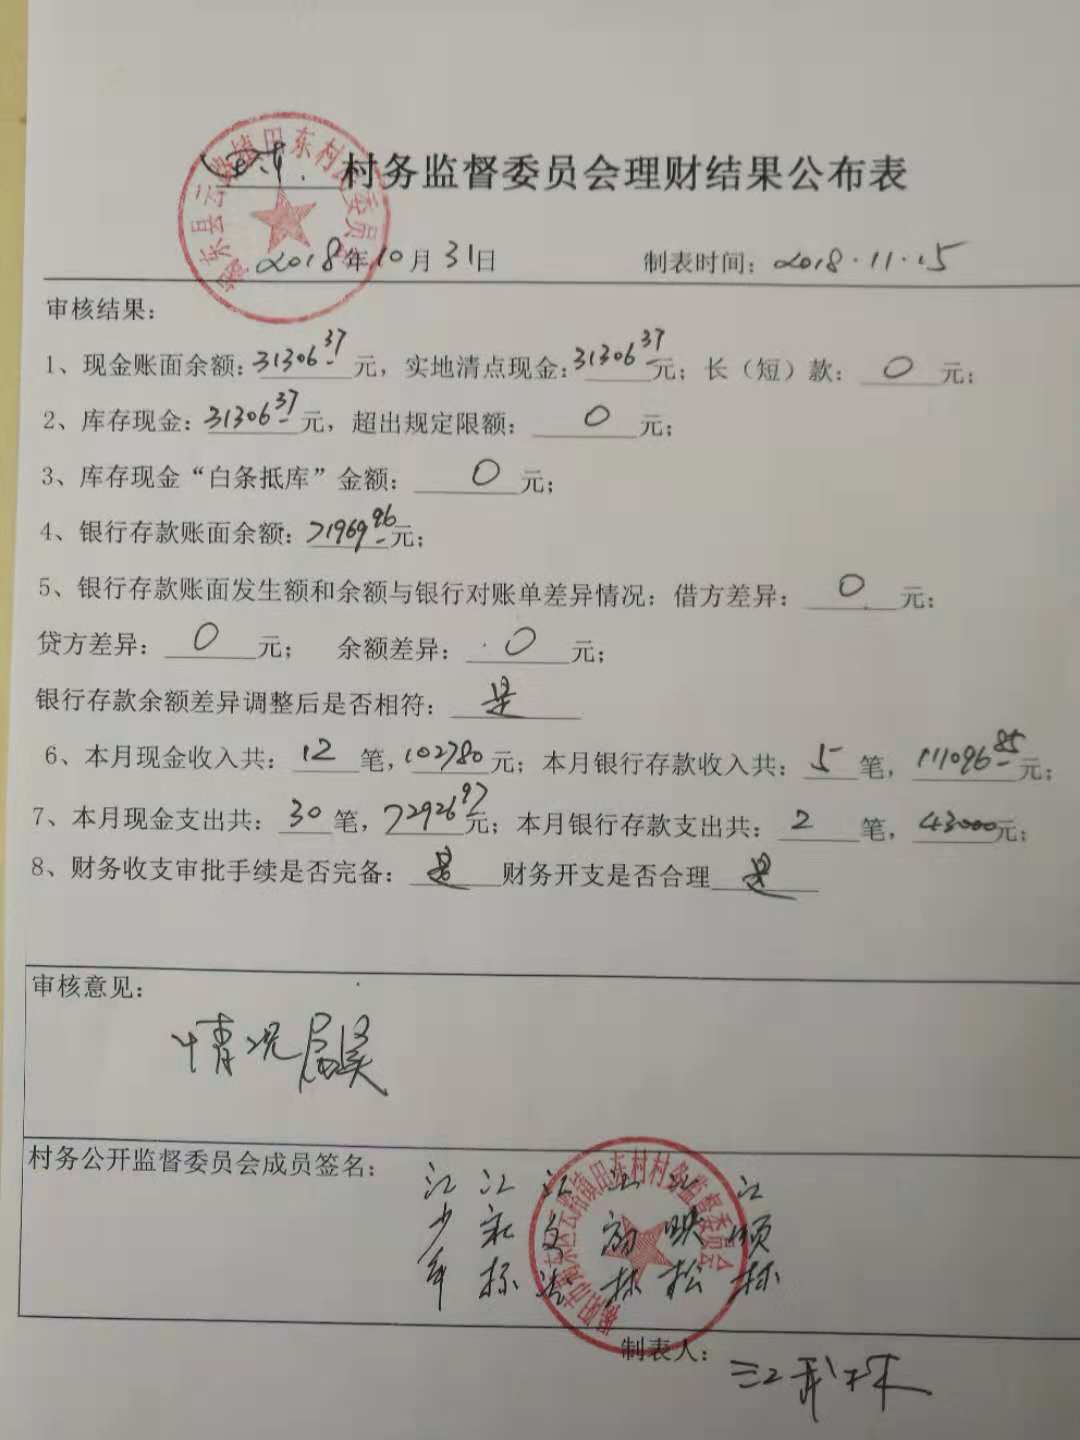 田东村务监督委员会理财结果公布表
2018年10月31日 制表时间：2018.11.15
审核结果：
1、现金账面余额：31306.37元，实地清点现金：31306.37元；长（短）款：0元；
2、库存现金：31306.37元，超出规定限额：0元；
3、库存现金“白条抵库”金额：0元；
4、银行存款账面余额：71969.96元；
5、银行存款账面发生额和余额与银行对账单差异情况：借方差异：0元；
贷方差异：0元； 余额差异：0元；
银行存款余额差异调整后是否相符：是
6、本月现金收入共：12笔，102780元；本月银行存款收入共：5笔，111096.85元；
7、本月现金支出共：30笔，72926.97元；本月银行存款支出共：2笔，43000元；
8、财务收支审批手续是否完备：是 财务开支是否合理 是
审核意见：
情况属实
村务公开监督委员会成员签名：
江少年
制表人：